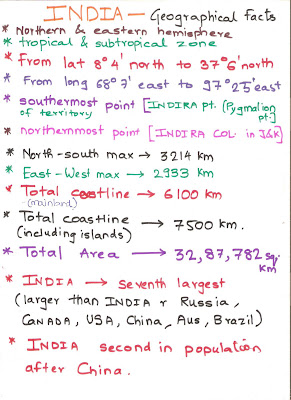 INDIA - Geographical facts
* Northern & eastern hemisphere
* tropical & subtropical zone
* From lat 8° 4' north to 37° 6' north
* From long 68° 7' east to 97° 25' east
* southernmost point [INDIRA pt. (Pygmalion pt.]
of territory
* northernmost point [INDIRA COL. in J&K]
* North-south max → 3214 km
* East-West max → 2933 km
* Total costline → 6100 km
(mainland)
* Total coastline → 7500 km.
(including islands)
* Total Area → 32,87,782 sq. km
* INDIA → seventh largest
(larger than INDIA r Russia,
CANADA, USA, China, Aus, Brazil)
* INDIA second in population
after China.